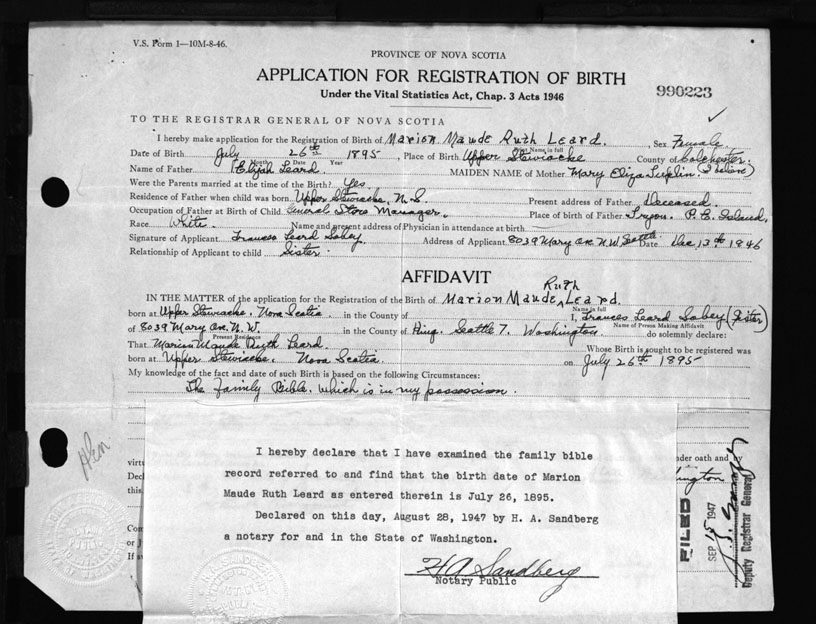 V.S. Form 1—10M-8-46.
PROVINCE OF NOVA SCOTIA
APPLICATION FOR REGISTRATION OF BIRTH
Under the Vital Statistics Act, Chap. 3 Acts 1946
990223
TO THE REGISTRAR GENERAL OF NOVA SCOTIA
I hereby make application for the Registration of Birth of Marion Maude Ruth Leard. Sex Female
Print Name in full
Date of Birth July 26th 1895, Place of Birth Upper Stewiacke County of Colchester.
Month Date Year
Name of Father Elijah Leard. MAIDEN NAME of Mother Mary Eliza Tuplin. (I believe)
Were the Parents married at the time of the Birth? Yes.
Residence of Father when child was born Upper Stewiacke, N.S. Present address of Father Deceased.
Occupation of Father at Birth of Child General Store Manager. Place of birth of Father Tryon. P. E. Island.
Race White. Name and present address of Physician in attendance at birth
Signature of Applicant Frances Leard Sobey. Address of Applicant 8039 Mary Ave. N.W. Seattle Date Dec. 13th 1946
Relationship of Applicant to child Sister.
AFFIDAVIT
IN THE MATTER of the application for the Registration of the Birth of Marion Maude Ruth Leard.
Name in full
born at Upper Stewiacke. Nova Scotia in the County of I, Frances Leard Sobey (Sister)
Name of Person Making Affidavit
of 8039 Mary Ave. N.W. in the County of King. Seattle 7. Washington. do solemnly declare:
Present Residence
That Marion Maude Ruth Leard. Whose Birth is sought to be registered was
born at Upper Stewiacke. Nova Scotia. on July 26th 1895
My knowledge of the fact and date of such Birth is based on the following Circumstances:
The Family Bible. which is in my possession.
I hereby declare that I have examined the family bible
record referred to and find that the birth date of Marion
Maude Ruth Leard as entered therein is July 26, 1895.
Declared on this day, August 28, 1947 by H. A. Sandberg
a notary for and in the State of Washington.
H A Sandberg
Notary Public
virtu
Decl
this
Com
or J
If s
der oath and by
ington
FILED
SEP 15 1947
Deputy Registrar General